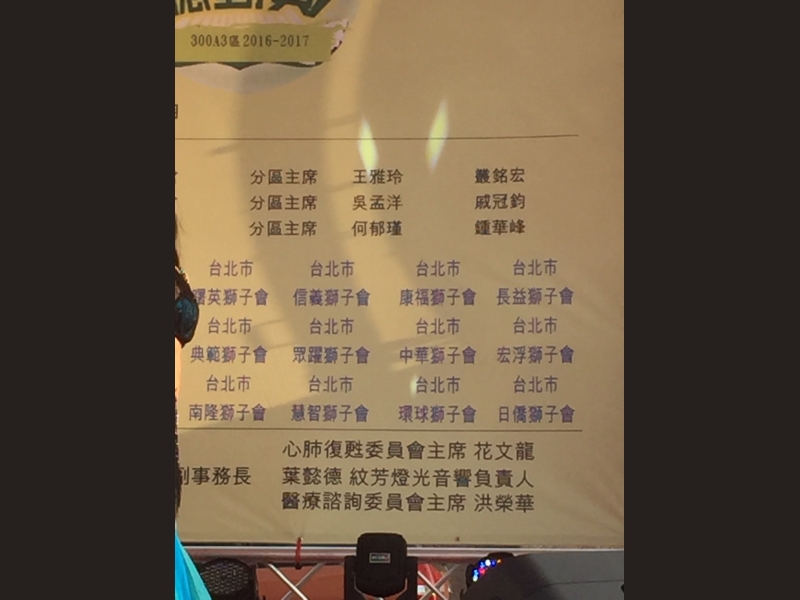 300A3區 2016-2017
分區主席 王雅玲 叢銘宏
分區主席 吳孟洋 戚冠鈞
分區主席 何郁瑾 鍾華峰
台北市 台北市 台北市 台北市
英獅子會 信義獅子會 康福獅子會 長益獅子會
台北市 台北市 台北市 台北市
典範獅子會 眾躍獅子會 中華獅子會 宏浮獅子會
台北市 台北市 台北市 台北市
南隆獅子會 慧智獅子會 環球獅子會 日僑獅子會
心肺復甦委員會主席 花文龍
副事務長 葉懿德 紋芳燈光音響負責人
醫療諮詢委員會主席 洪榮華